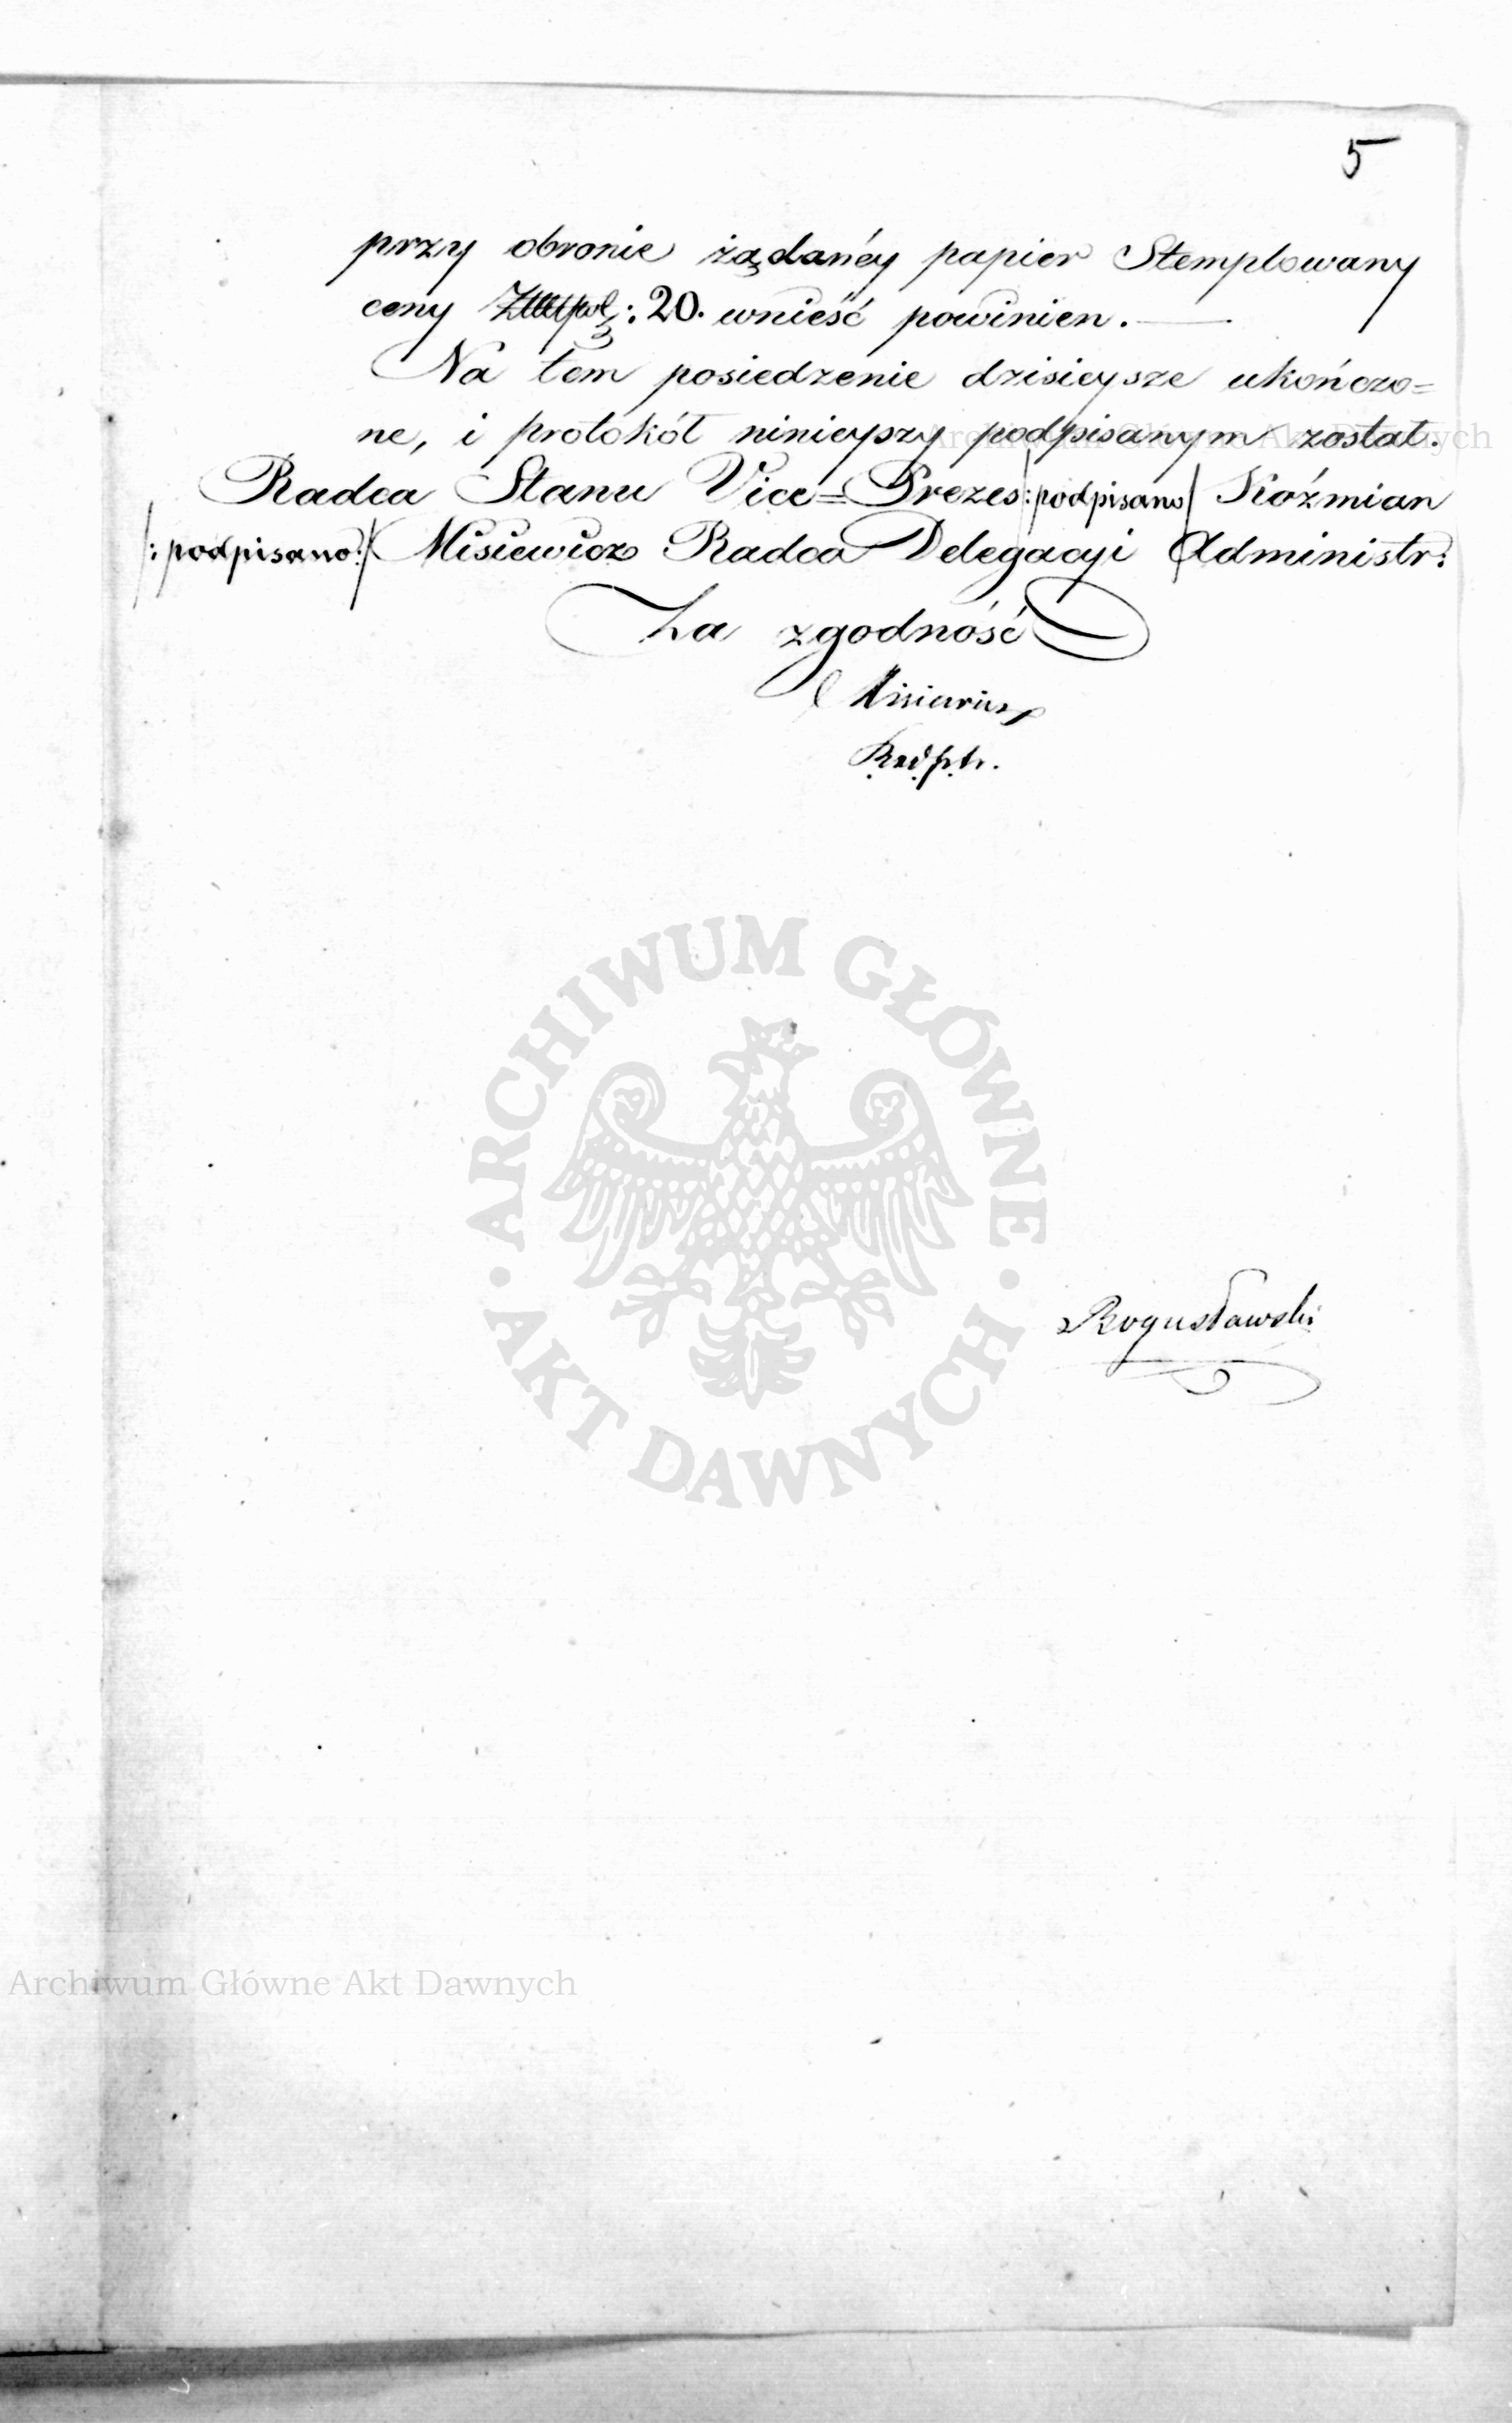 5
przy obronie żądanéy papier Stemplowany
ceny Złłłpol: 20. wnieść powinien. —
Na tem posiedzenie dzisieysze ukończo=
ne, i protokół ninieyszy podpisanym został.
Radca Stanu Vice=Prezes /:podpisano/ Koźmian
/:podpisano:/ Misiewicz Radca Delegacyi Administr:
Za zgodność
Misiewicz
Bogusławski
ARCHIWUM GŁÓWNE
AKT DAWNYCH
Archiwum Główne Akt Dawnych
Archiwum Główne Akt Dawnych